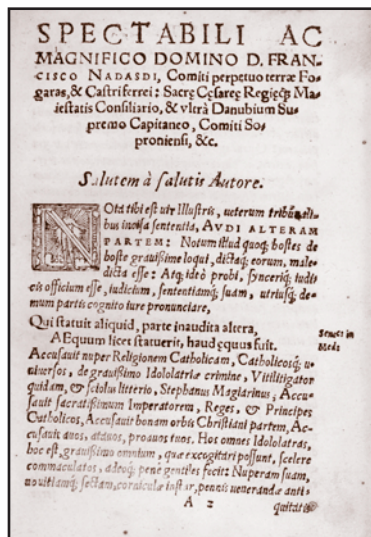 SPECTABILI AC
MAGNIFICO DOMINO D. FRAN-
CISCO NADASDI, Comiti perpetuo terræ Fo-
garas, & Castri ferrei: Sacrę Cęsareę Regięq́; Ma-
iestatis Consiliario, & vltrà Danubium Su-
premo Capitaneo, Comiti So-
proniensi, &c.
Salutem à salutis Autore.
NOta tibi est uir Illustris, ueterum tribunali-
bus incisa sententia, AVDI ALTERAM
PARTEM: Notum illud quoq; hostes de
hoste grauißime loqui, dictaq; eorum, male-
dicta esse: Atq; ideò probi, synceriq́; iudi-
cis officium esse, iudicium, sententiamq́; suam, utriusq́; de-
mum partis cognito iure pronunciare,
Qui statuit aliquid, parte inaudita altera,
AEquum licet statuerit, haud ęquus fuit.
Seneca in
Med:
Accusauit nuper Religionem Catholicam, Catholicosq́; u-
niuersos, de grauißimo Idololatriæ crimine, Vitilitigator
quidam, & sciolus litterio, Stephanus Magiarinus; Accu-
sauit sacratißimum Imperatorem, Reges, & Principes
Catholicos, Accusauit bonam orbis Christiani partem, Ac-
cusauit auos, atauos, proauos tuos. Hos omnes Idololatras,
hoc est, grauißimo omnium, quæ excogitari possunt, scelere
commaculatos, adeoq́; penè gentiles fecit: Nuperam suam,
nouitiamq́; sectam, corniculæ instar, pennis uenerandæ anti-
A 2 quitatis